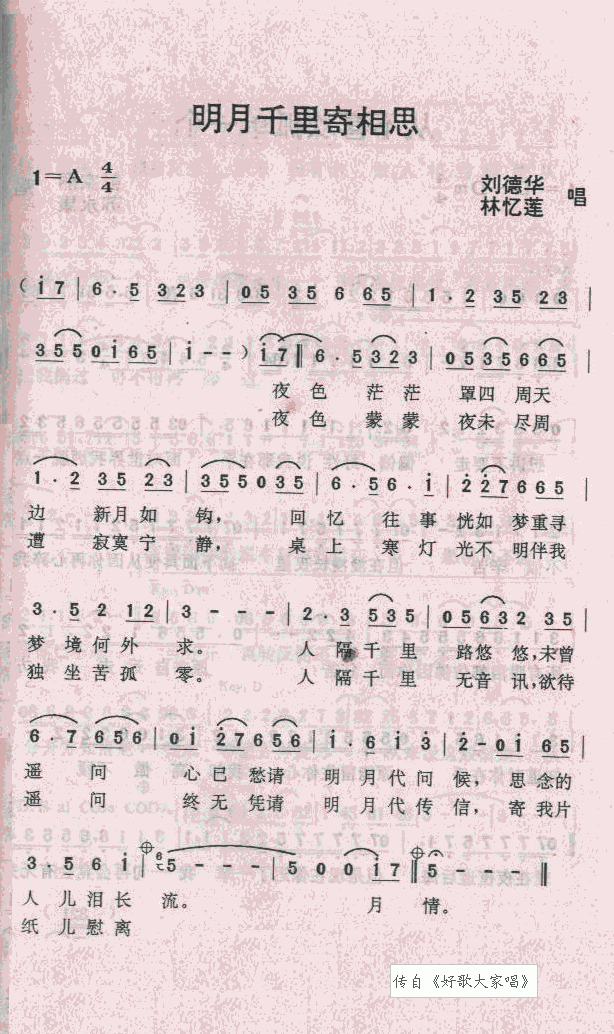 明月千里寄相思
1=A 4/4
刘德华
林忆莲 唱
(i̇7|6·5 323|05 35 6 65|1·2 35 23|
3550i̇65|i̇--)i̇7‖6·5323|0535665|
夜色 茫茫 罩四 周天
夜色 蒙蒙 夜未 尽周
1·2 35 23|355035|6·56·i̇|2̇2̇7665|
边 新月如 钩, 回忆 往事 恍如 梦重寻
遭 寂寞宁 静, 桌上 寒灯 光不 明伴我
3·52 12|3---|2·3 535|05632 35|
梦境何外 求。 人隔千里 路悠悠,未曾
独坐苦孤 零。 人隔千里 无音讯,欲待
6·7656|0i̇ 2̇7656|i̇·6i̇3̇|2̇-0i̇ 65|
遥问 心已愁请 明月代问 候, 思念的
遥问 终无凭请 明月代传 信, 寄我片
3·56i̇|5---|500i̇7‖5---‖
人儿泪长 流。 月 情。
纸儿慰离
传自《好歌大家唱》